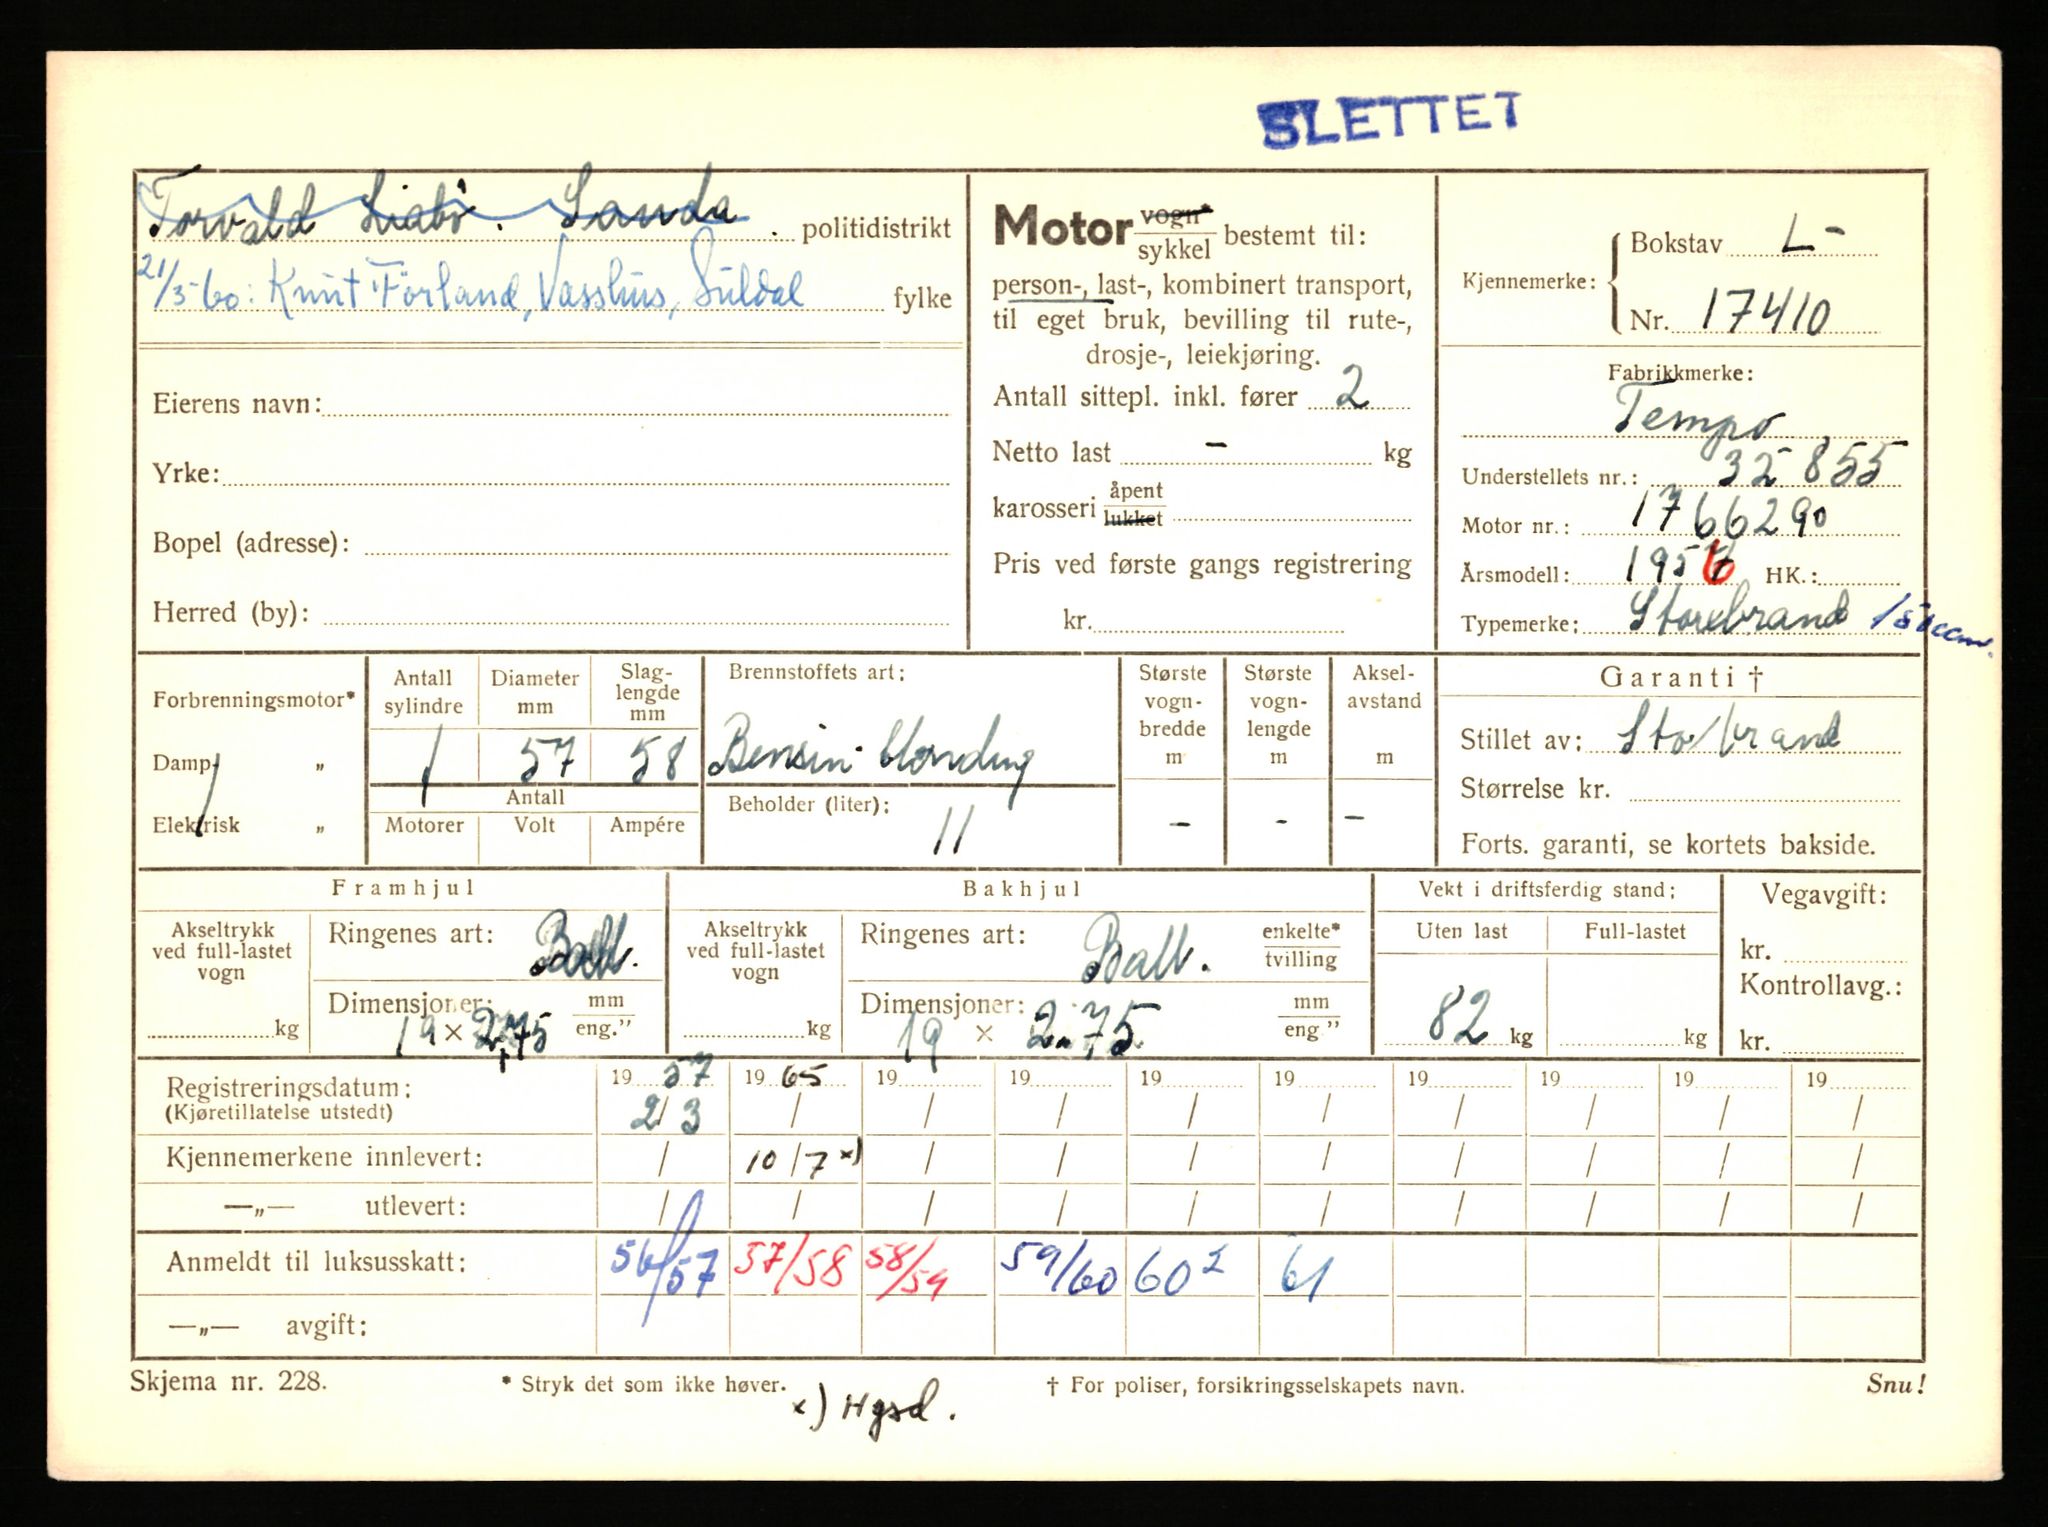 SLETTET
Torvald Liabö. Sanda politidistrikt
21/5-60: Knut Förland, Vasshus, Suldal fylke
Eierens navn:
Yrke:
Bopel (adresse):
Herred (by):
Motor vogn* sykkel bestemt til:
person-, last-, kombinert transport,
til eget bruk, bevilling til rute-,
drosje-, leiekjøring.
Antall sittepl. inkl. fører 2
Netto last - kg
karosseri åpent lukket
Pris ved første gangs registrering
kr.
Kjennemerke: Bokstav L-
Nr. 17410
Fabrikkmerke:
Tempo
Understellets nr.: 32 855
Motor nr.: 1766290
Årsmodell: 1956 HK.:
Typemerke: Storebrand 150ccm.
Forbrenningsmotor*
Damp „
Elektrisk „
Antall sylindre
Diameter mm
Slag-lengde mm
1 57 58
Antall
Motorer Volt Ampére
Brennstoffets art:
Bensin
Beholder (liter):
11
Største vogn-bredde m
Største vogn-lengde m
Aksel-avstand m
- - -
Garanti †
Stillet av: Sto/brand
Størrelse kr.
Forts. garanti, se kortets bakside.
Framhjul
Akseltrykk ved full-lastet vogn
kg
Ringenes art: Ball.
Dimensjoner: mm eng.”
19 × 2,75
Bakhjul
Akseltrykk ved full-lastet vogn
kg
Ringenes art: Ball. enkelte* tvilling
Dimensjoner: mm eng”
19 × 2.75
Vekt i driftsferdig stand:
Uten last Full-lastet
82 kg kg
Vegavgift:
kr.
Kontrollavg.:
kr.
Registreringsdatum: 19 57 19 65 19 19 19 19 19 19 19 19
(Kjøretillatelse utstedt) 2/3 / / / / / / / / /
Kjennemerkene innlevert: / 10/7 x) / / / / / / / /
—„— utlevert: / / / / / / / / / /
Anmeldt til luksusskatt: 56/57 57/58 58/59 59/60 60² 61
—„— avgift:
Skjema nr. 228. * Stryk det som ikke høver. † For poliser, forsikringsselskapets navn. Snu!
x) Hgsd.